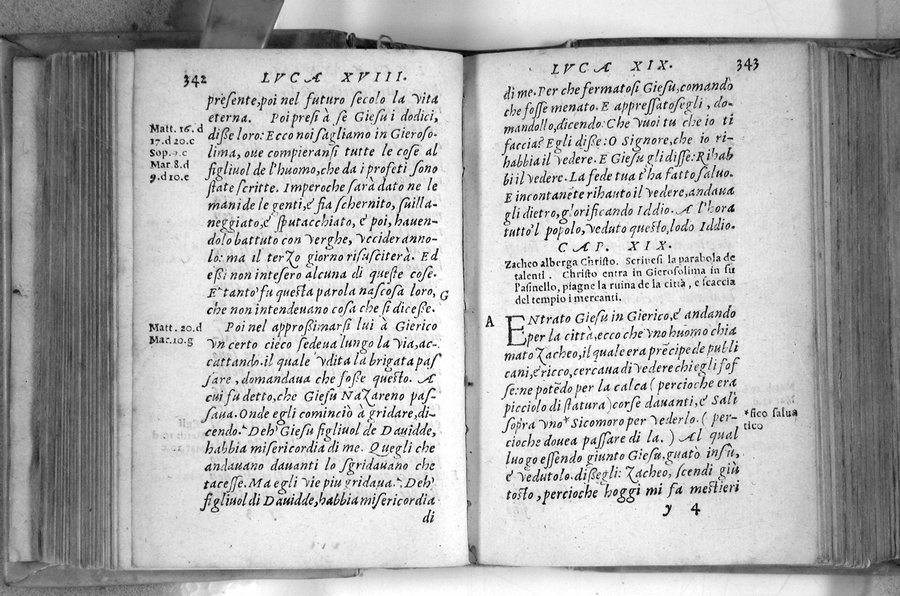 342
LVCAE XVIII.
Matt. 16. d
17. d 20. c
Mar. 8. d
9. d 10. e
presente, poi nel futuro secolo la vita
eterna. Poi presi à se Giesu i dodici,
disse loro: Ecco noi sagliamo in Gieroso-
lima, oue compieransi tutte le cose al
figliuol de l'huomo, che da i profeti sono
state scritte. Imperoche sarà dato ne le
mani de le genti, e fia schernito, suilla-
neggiato, e sputacchiato, e poi, hauen-
dolo battuto con verghe, vccideranno-
lo: ma il terzo giorno risusciterà. Ed
essi non intesero alcuna di queste cose.
E tanto fu questa parola nascosa loro,
che non intendeuano cosa che si dicesse.
G
Matt. 20. d
Mar. 10. g
Poi nel approssimarsi lui à Gierico
vn certo cieco sedeua lungo la via, ac-
cattando. il quale vdita la brigata pas
sare, domandaua che fosse questo. A
cui fu detto, che Giesu Nazareno pas-
saua. Onde egli cominciò a gridare, di-
cendo. Deh' Giesu figliuol de Dauidde,
habbia misericordia di me. Quegli che
andauano dauanti lo sgridauano che
tacesse. Ma egli vie piu gridaua. Deh'
figliuol di Dauidde, habbia misericordia
di
LVCAE XIX.
343
di me. Per che fermatosi Giesu, comandò
che fosse menato. E appressatosegli, do-
mandollo, dicendo: Che vuoi tù che io ti
faccia? Egli disse: O Signore, che io ri-
habbia il vedere. E Giesu gli disse: Rihab
bi il vedere. La fede tua t'ha fatto saluo.
E incontanẽte rihauto il vedere, andaua
gli dietro, glorificando Iddio. A l'hora
tutto'l popolo, veduto questo, lodo Iddio.
CAP. XIX.
Zacheo alberga Christo. Scriuesi la parabola de
talenti. Christo entra in Gierosolima in su
l'asinello, piagne la ruina de la città, e scaccia
del tempio i mercanti.
A
ENtrato Giesu in Gierico, e andando
per la città, ecco che vno huomo chia
mato Zacheo, il quale era prẽcipe de publi
cani, e ricco, cercaua di vedere chi egli fos
se: ne potẽdo per la calca (percioche era
picciolo di statura) corse dauanti, e Salì
sopra vno* Sicomoro per vederlo. (per-
cioche douea passare di la.) Al qual
luogo essendo giunto Giesu, guatò in sù,
e vedutolo. dissegli: Zacheo, scendi giù
tosto, percioche hoggi mi fa mestieri
*fico salua
tico
y 4